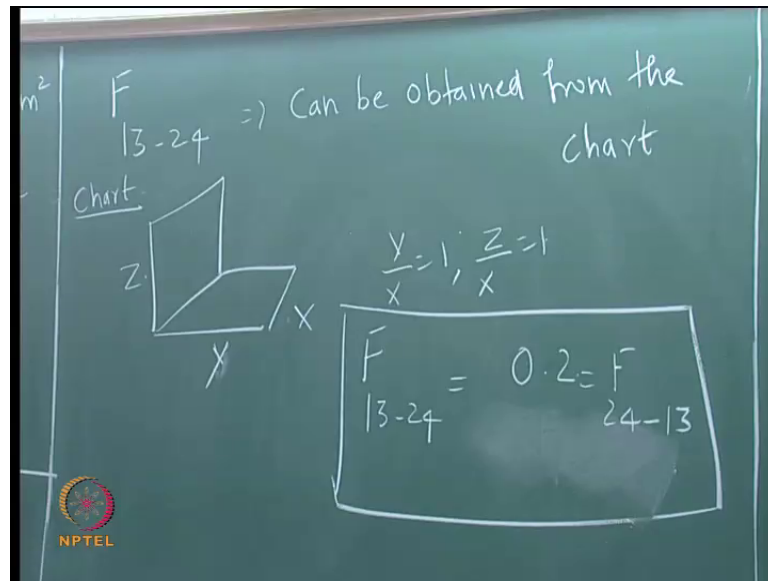 m²
F
13-24 => Can be obtained from the
chart
Chart
Z
X
Y
Y/X = 1, Z/X = 1
F = 0.2 = F
13-24 24-13
NPTEL